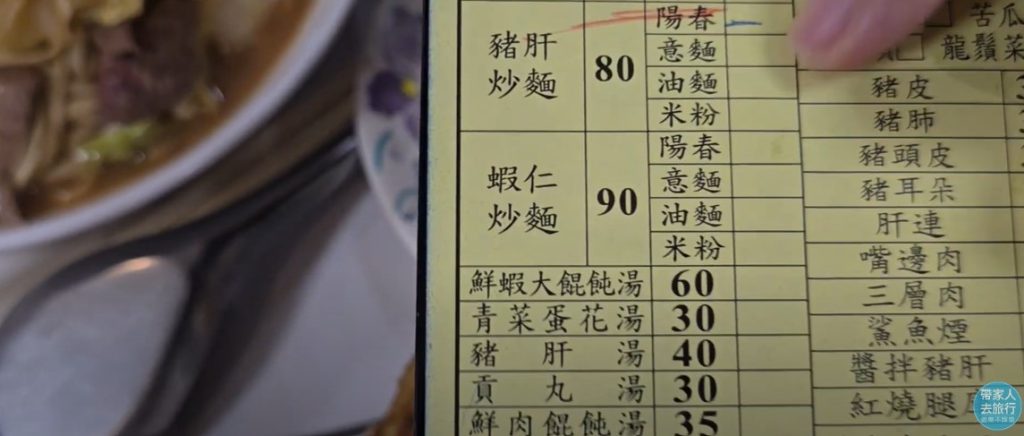 陽春
豬肝
炒麵
80
意麵
油麵
米粉
蝦仁
炒麵
90
陽春
意麵
油麵
米粉
鮮蝦大餛飩湯 60
青菜蛋花湯 30
豬肝湯 40
貢丸湯 30
鮮肉餛飩湯 35
苦瓜
龍鬚菜
豬皮
豬肺
豬頭皮
豬耳朵
肝連
嘴邊肉
三層肉
鯊魚煙
醬拌豬肝
紅燒腿
帶家人
去旅行